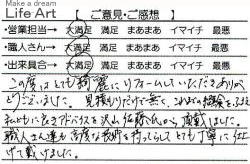 Make a dream
Life Art 【ご意見・ご感想】
→営業担当→ 大満足 満足 まあまあ イマイチ 最悪
→職人さん→ 大満足 満足 まあまあ イマイチ 最悪
→出来具合→ 大満足 満足 まあまあ イマイチ 最悪
この度はとても綺麗にリフォームしていただきありが
とうございました。見積りだけで無く、これまの経験をふまえ
私どもに色々アドバイスを沢山、佐藤氏から頂戴しました。
職人さん達も高度な技術を持ってらしてとても丁寧に仕上
げて戴けました。